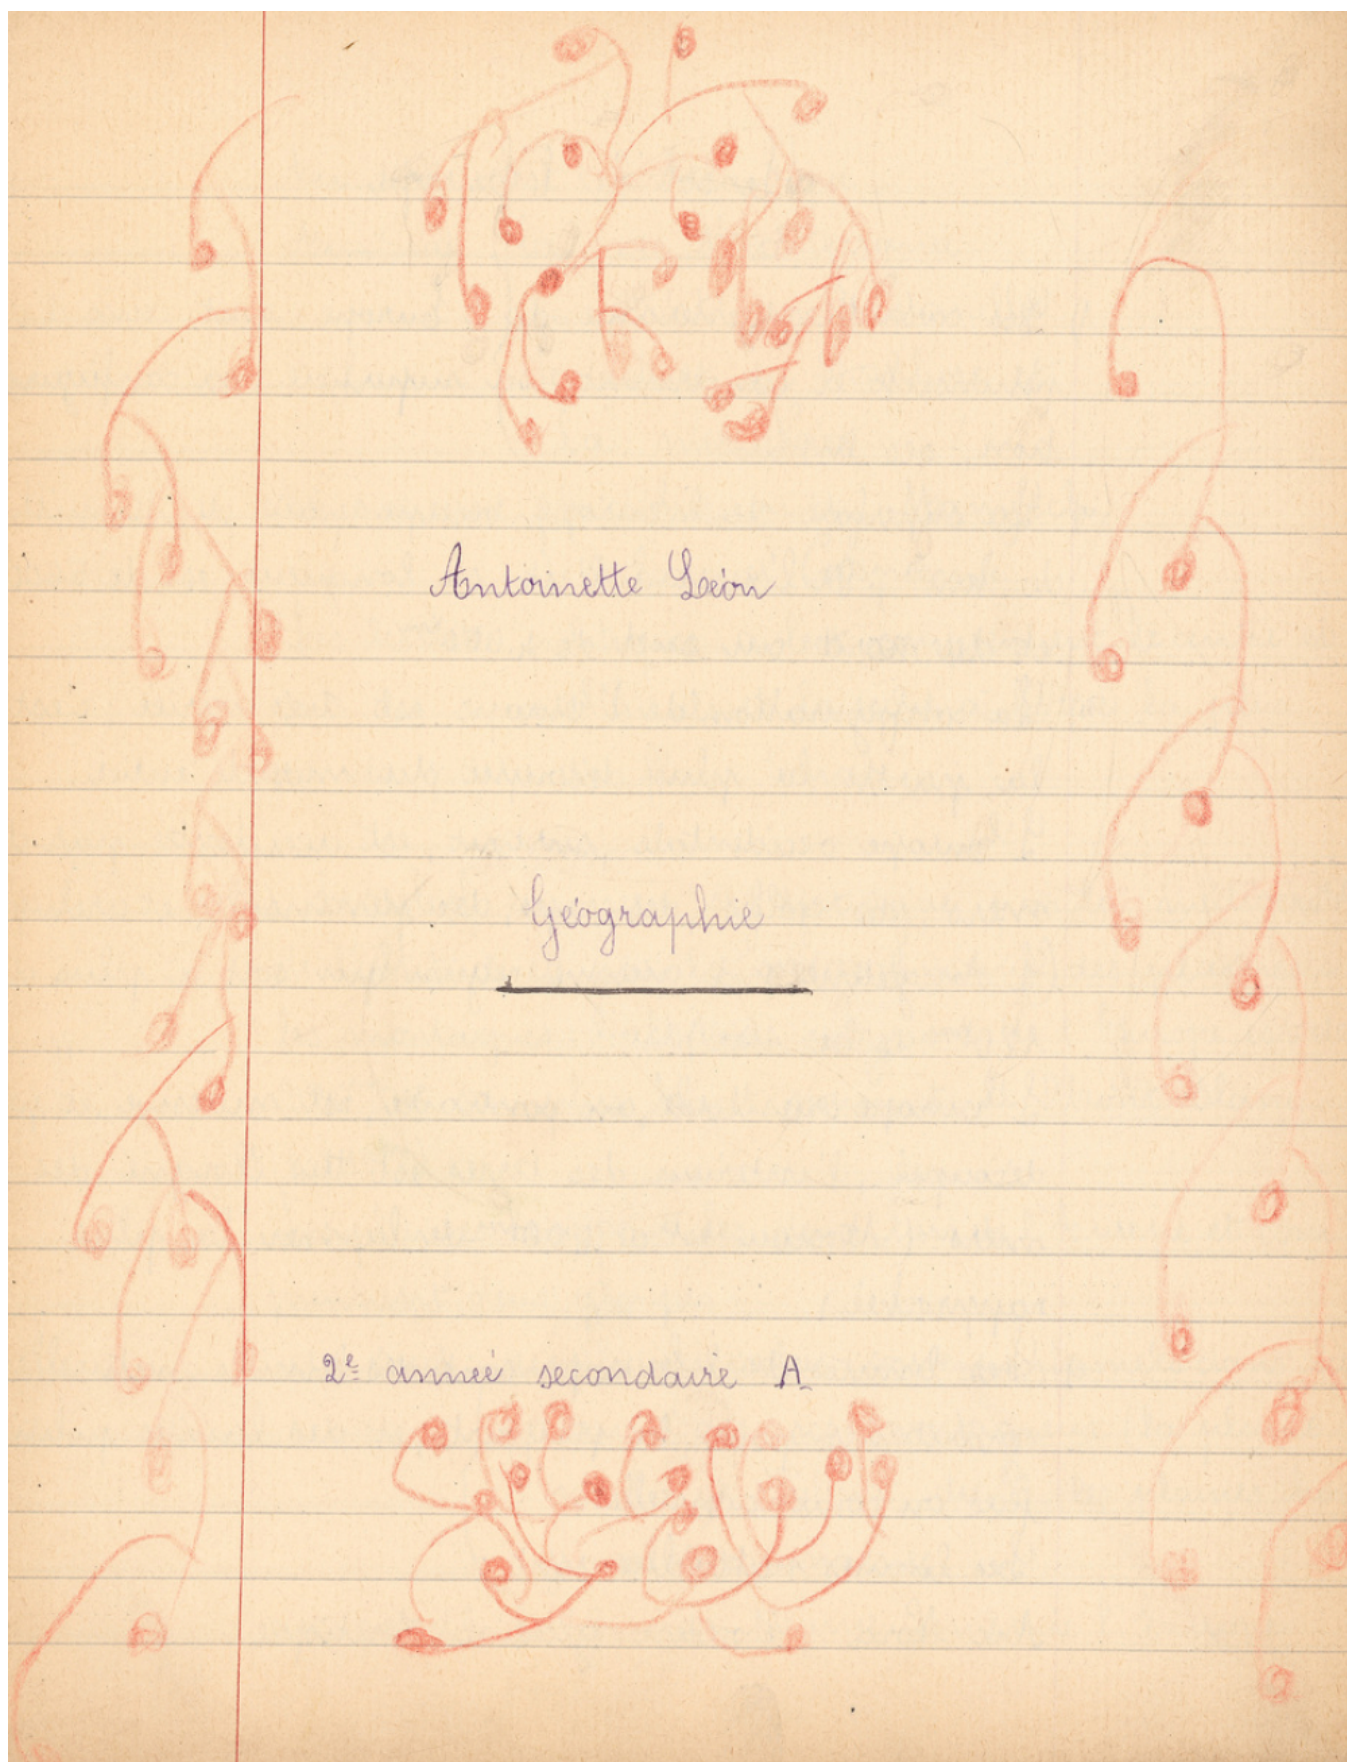 Antoinette Léon
Géographie
2e année secondaire A